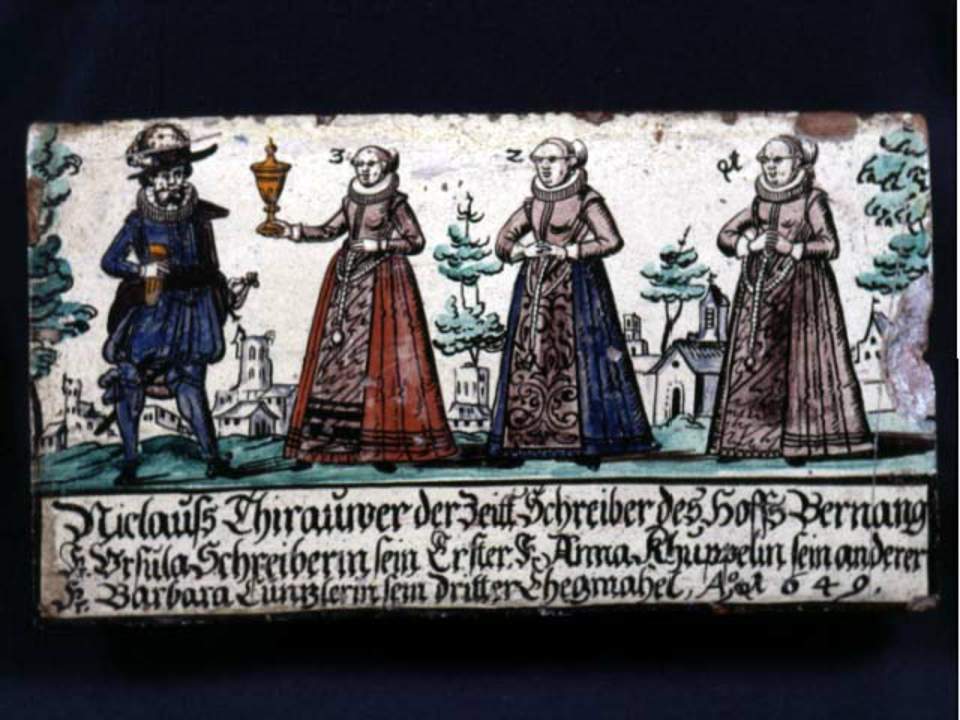 3 2 1
Niclauß Thirauwer der Zeitt Schreiber des Hoffs Bernang
Fr. Vrsula Schreiberin sein Erster. Fr. Anna Khuppelin sein anderer
Fr. Barbara Cuntzlerin sein dritter Ehegmahel, A͞o 1649.